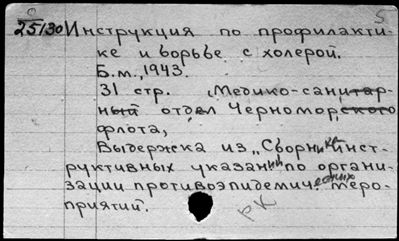 5
25130 Инструкция по профилакти-
ке и борьбе с холерой.
Б.м., 1943.
31 стр. (Медико-санитар-
ный отдел Черноморского
флота,
Выдержка из „Сборника инст-
руктивных указаний по органи-
зации противоэпидемических меро-
приятий.
РК